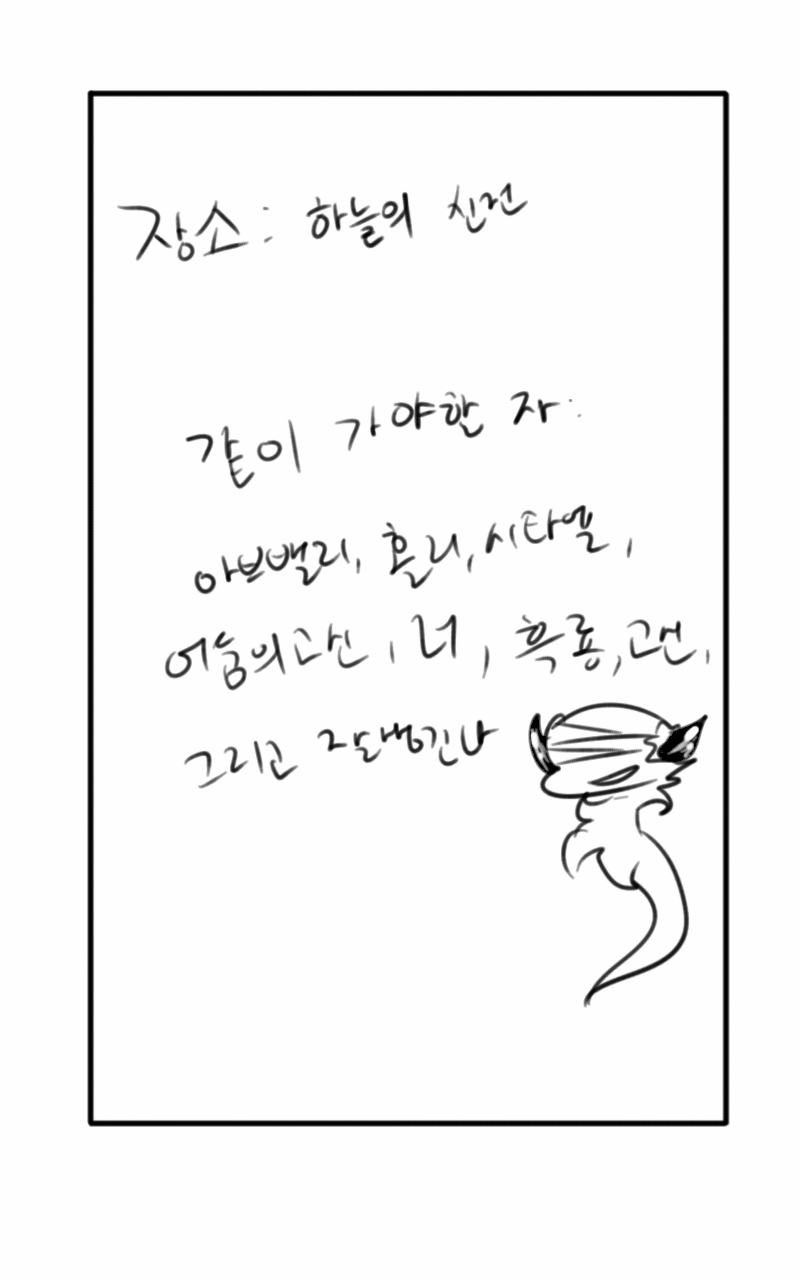 장소: 하늘의 신전
같이 가야할 자:
아브밸리, 홀리, 시타엘,
어둠의고신, 너, 흑룡, 고션,
그리고 잘생긴나